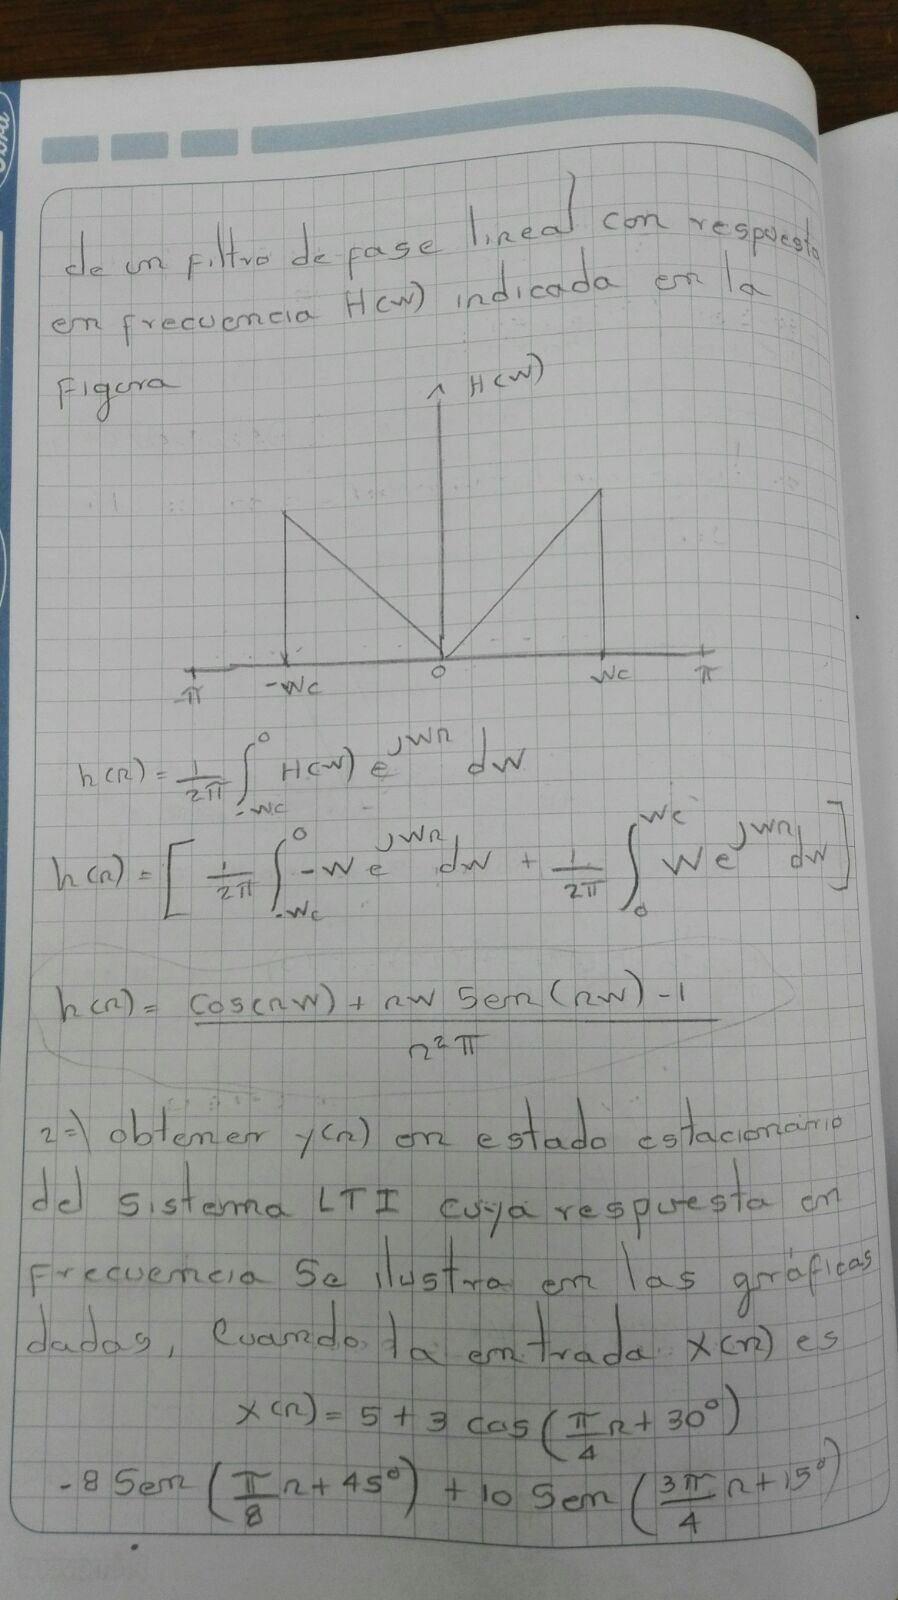 de un filtro de fase lineal con respuesta
en frecuencia H(w) indicada en la
Figura
H(w)
-π -Wc 0 Wc π
h(n) = 1/2π ∫_{-Wc}^{0} H(w) e^{jwn} dw
h(n) = [ 1/2π ∫_{-Wc}^{0} -W e^{jwn} dw + 1/2π ∫_{0}^{Wc} W e^{jwn} dw ]
h(n) = cos(nw) + nw Sen(nw) - 1 / n² π
2=) obtener y(n) en estado estacionario
del sistema LTI cuya respuesta en
Frecuencia Se ilustra en las gráficas
dadas, Cuando la entrada x(n) es
x(n) = 5 + 3 cos(π/4 n + 30°)
- 8 Sen (π/8 n + 45°) + 10 Sen (3π/4 n + 15°)